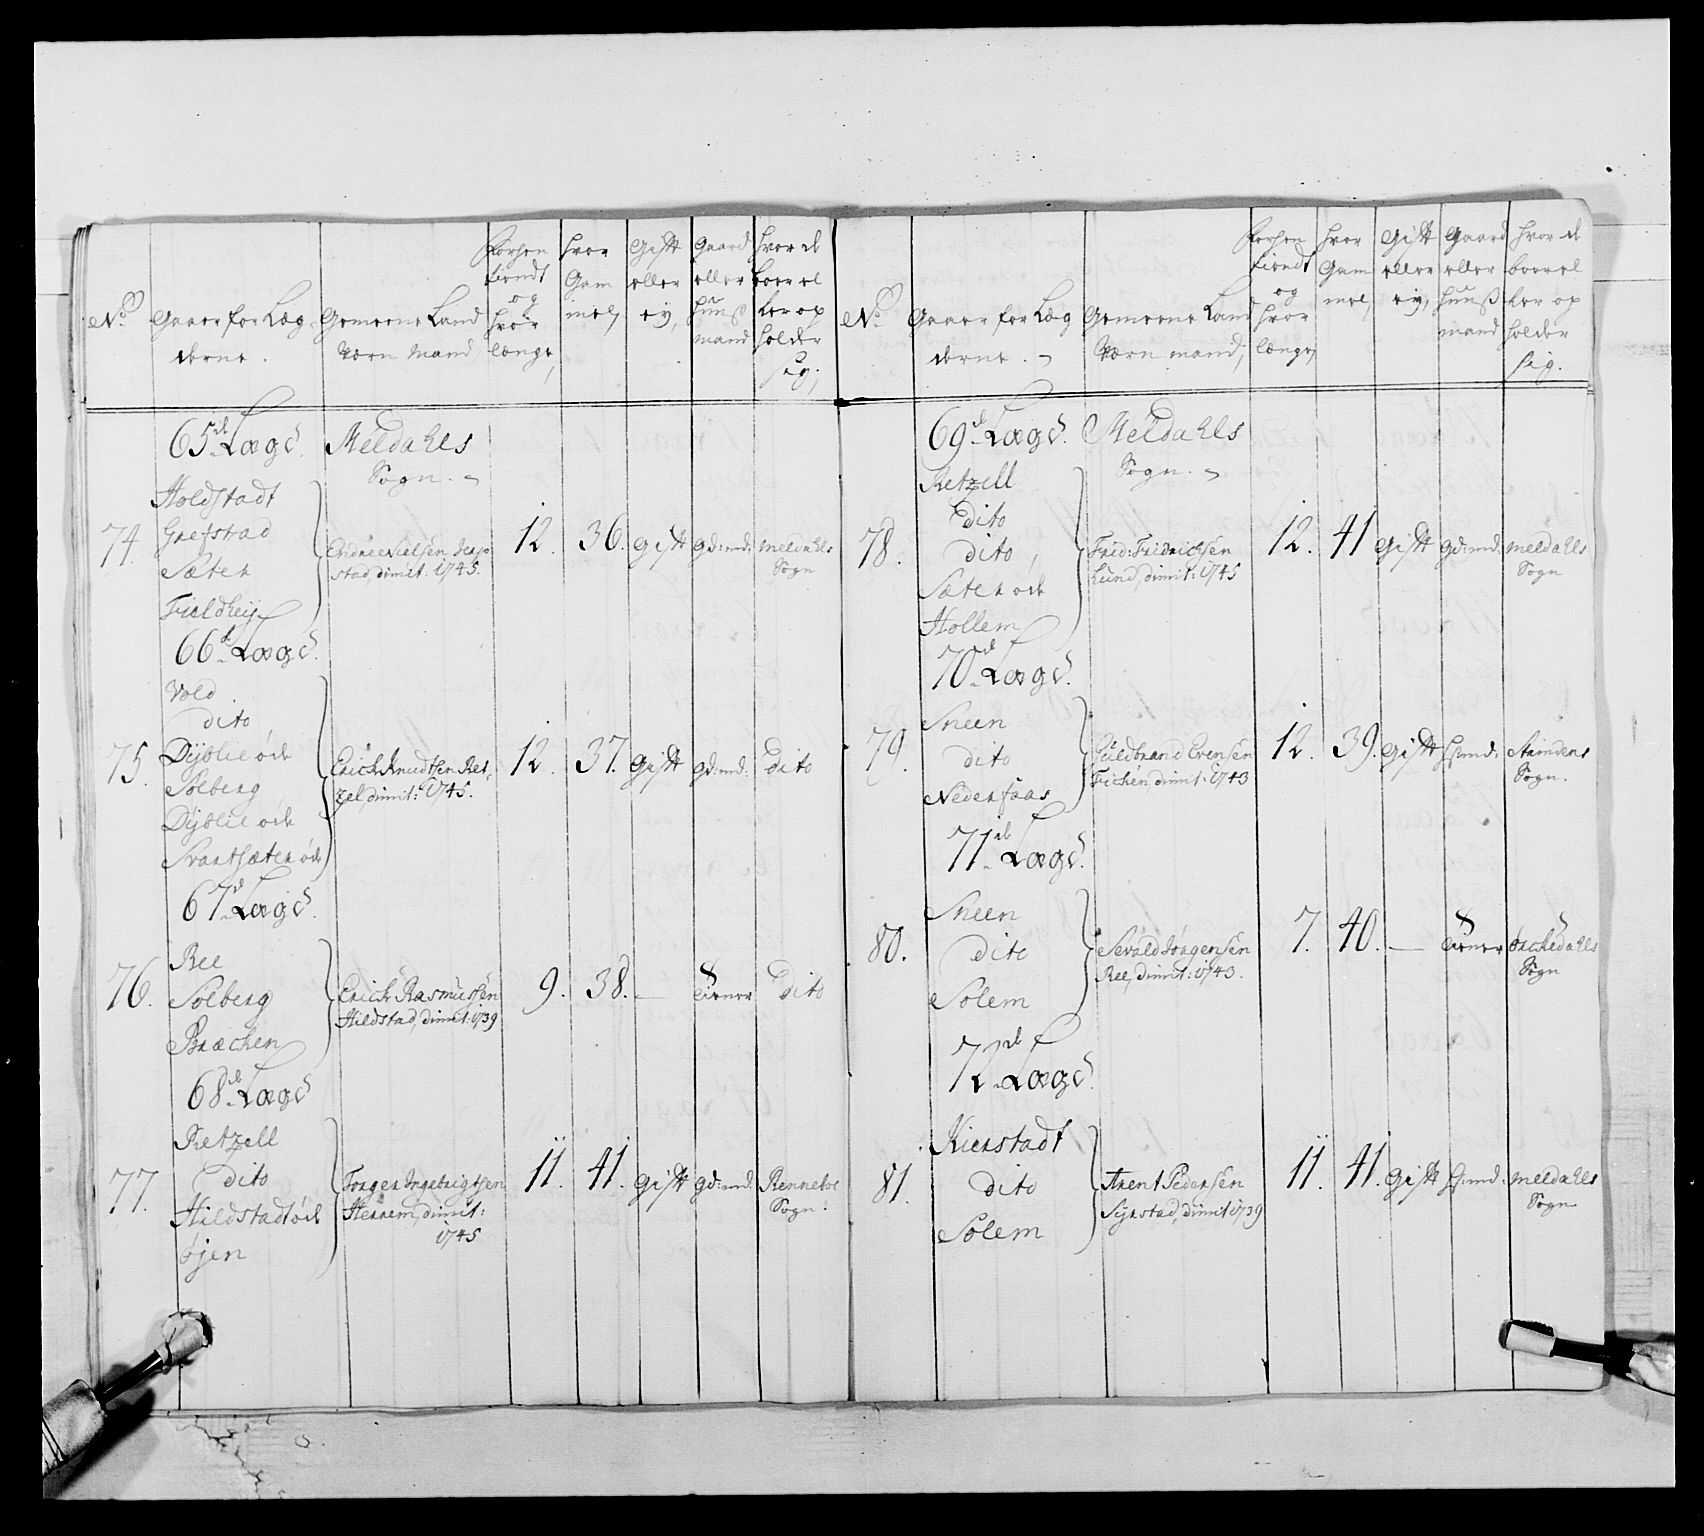 No.
Gaarer for Læg
derne.
Gemeene Land
Værn Mand
Forhen
tiendt
og
hvor
længe,
hvor
Gam
mel,
Gift
eller
ey,
Gaard
eller
Huuß
mand
hvor de
boer el
ler op
holder
sig,
65de Lægd.
Meldahls
Sogn.
74.
Holdstadt
Grefstad
Sæter
Fieldhøy
Endre Nielsen
stad, dimit: 1745.
12.
36.
Gift
gd:md:
Meldahls
Sogn
66de Lægd.
75.
Vold
dito
Dyblie øde
Solberg
Dyblie øde
Svartsæter øde
Erich Knudtsen Ret,
zel, dimit: 1745.
12.
37.
Gift
gd:md:
Dito
67de Lægd.
76.
Ree
Solberg
Bræchen
Erich Rasmussen
Hildstad, dimit: 1739
9.
38.
—
tiener
Dito
68de Lægd
77.
Retzell
dito
Hildstadt øde
Øjen
Torger Ingebrigtsen
Herrem, dimit:
1745
11.
41.
Gift
gd:md.
Renneboe
Sogn.
No.
Gaarer for Læg
derne.
Gemeene Land
Værn mand,
Forhen
tiendt
og
hvor
længe,
hvor
Gam
mel,
Gift
eller
ey,
Gaard
eller
Huuß
mand
hvor de
boer el
ler op
holder
sig.
69de Lægd.
Meldahls
Sogn.
78.
Retzell
Dito
dito
Sæter øde
Hollem
Frid: Fridrichsen
Lund, dimit: 1745
12.
41
Gift
gd:md:
Meldahls
Sogn
70de Lægd.
79.
Sneen
dito
Nederfaas
Guldbrand Evensen
dimit: 1743
12.
39.
Gift
H:md:
Sogn.
71de Lægd.
80.
Sneen
dito
Solem
Sevald Jørgensen
Ree, dimit: 1743.
7.
40.
—
tiener
Orchedahls
Sogn
72de Lægd.
81.
Kierstadt
dito
Solem
Arent Pedersen
Syrstad, dimit 1739
11.
41.
Gift
H:md:
Meldahls
Sogn